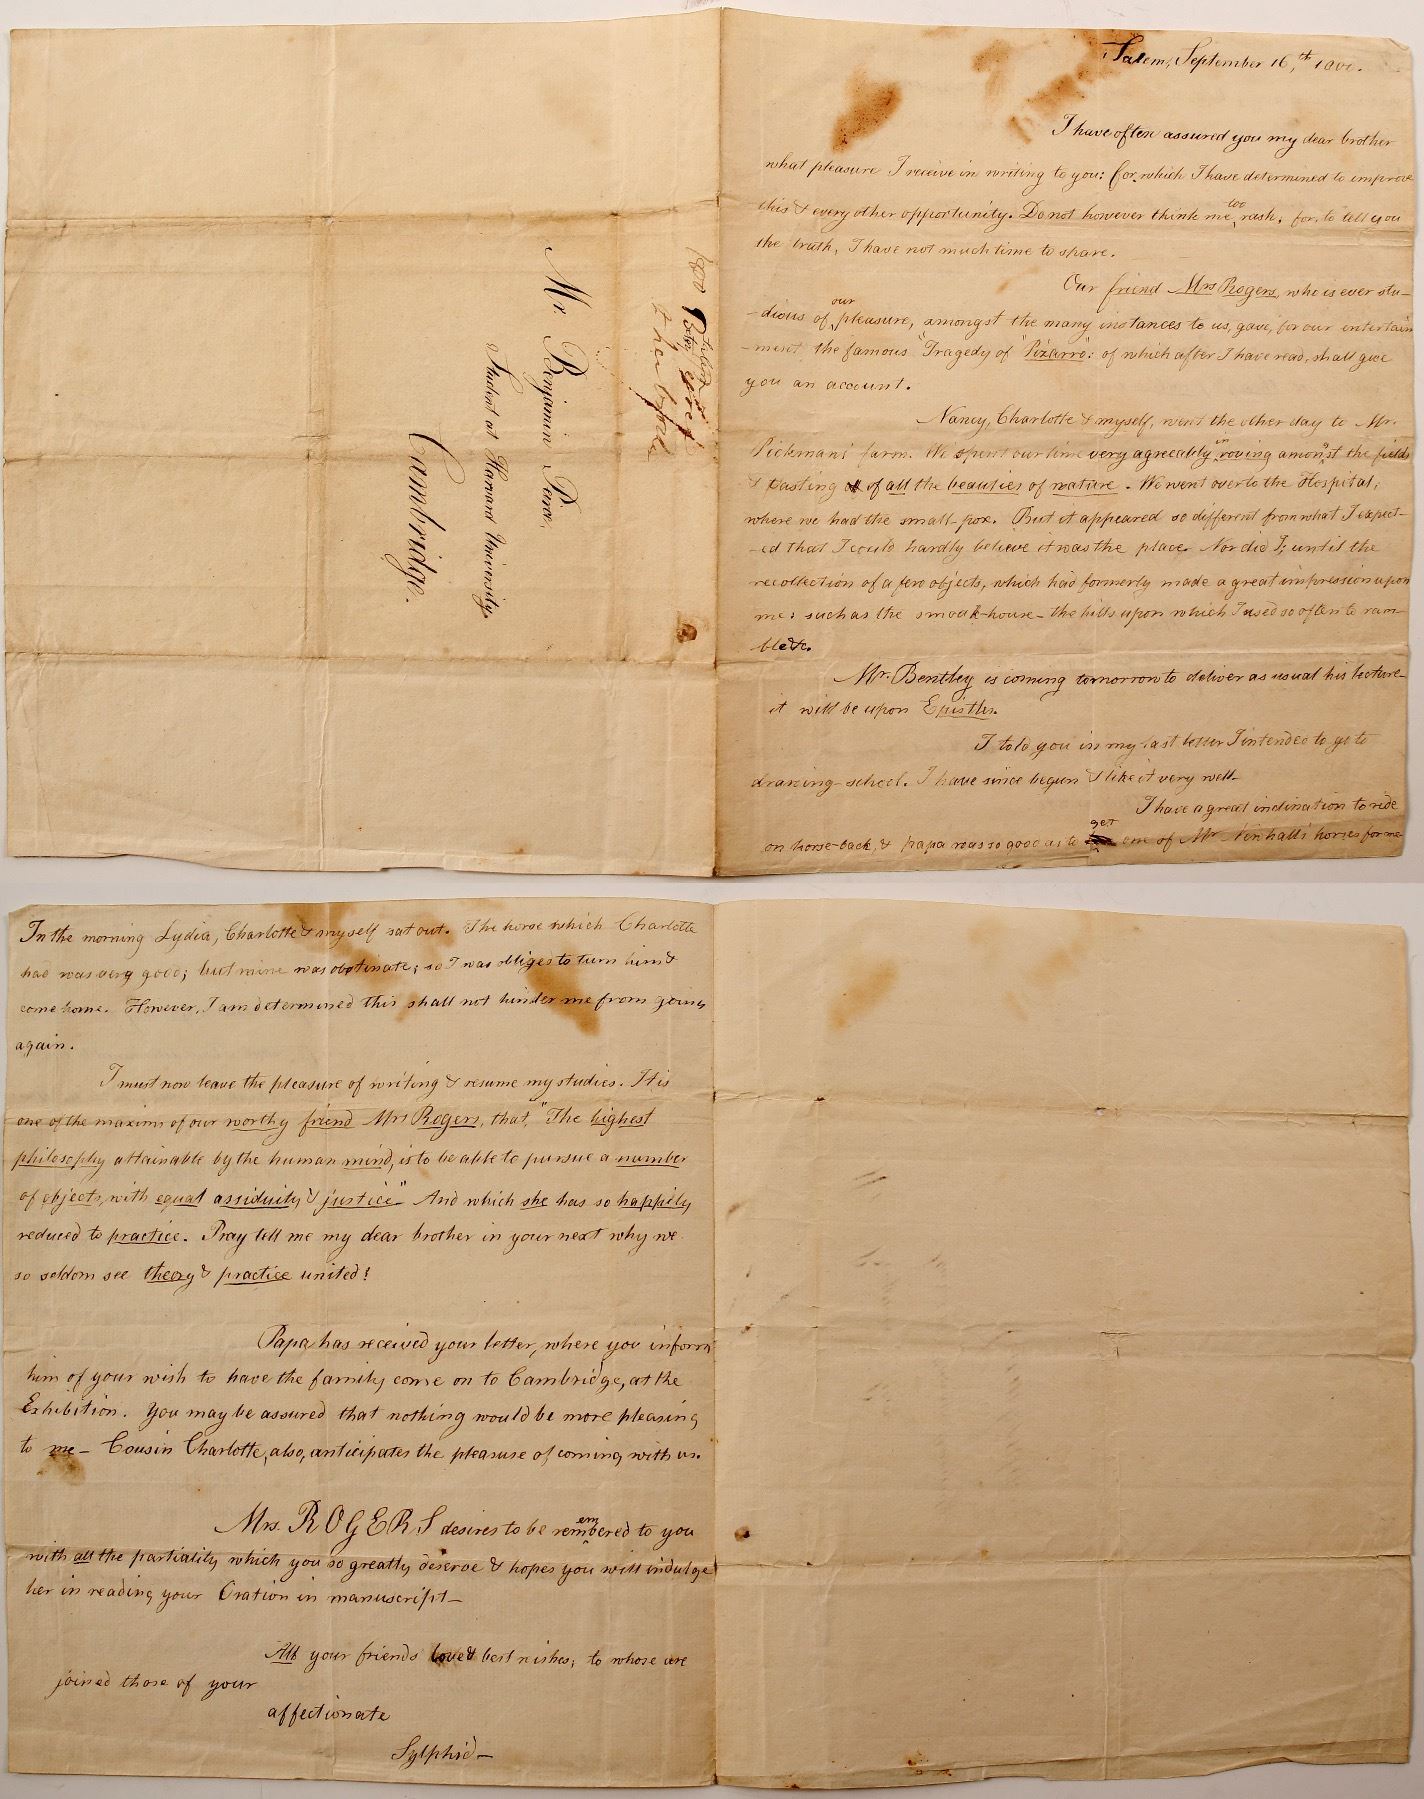 Salem, September 16,th 1800.
I have often assured you my dear brother
what pleasure I receive in writing to you: for which I have determined to improve
this & every other opportunity. Do not however think me too rash, for, to tell you
the truth, I have not much time to spare.
Our friend Mrs Rogers, who is ever stu-
-dious of our pleasure, amongst the many instances to us, gave, for our entertain
-ment, the famous "Tragedy of "Pizarro": of which after I have read, shall give
you an account.
Nancy, Charlotte & myself, went the other day to Mr.
Pickmans' farm. We spent our time very agreeably in roving amongst the fields
& tasting of all the beauties of nature. We went over to the Hospital,
where we had the small-pox. But it appeared so different from what I expect-
-ed that I could hardly believe it was the place. Nor did I, until the
recollection of a few objects, which had formerly made a great impression upon
me: such as the smoak-house - the hills upon which I used so often to ram-
ble &c.
Mr. Bentley is coming tomorrow to deliver as usual his lecture-
it will be upon Epistles.
I told you in my last letter I intended to go to
drawing-school. I have since begun & like it very well-
I have a great inclination to ride
on horse-back, & papa was so good as to get one of Mr. horses for me
1800
Mr. Benjamin Peirce,
Student at Harvard University,
Cambridge.
In the morning Lydia, Charlotte & myself sat out. The horse which Charlotte
had was very good; but mine was obstinate; so I was obliged to turn him &
come home. However, I am determined this shall not hinder me from going
again.
I must now leave the pleasure of writing & resume my studies. It is
one of the maxims of our worthy friend Mrs Rogers, that, "The highest
philosophy attainable by the human mind, is to be able to pursue a number
of objects, with equal assiduity & justice" And which she has so happily
reduced to practice. Pray tell me my dear brother in your next why we
so seldom see theory & practice united!
Papa has received your letter, where you inform
him of your wish to have the family come on to Cambridge, at the
Exhibition. You may be assured that nothing would be more pleasing
to me - Cousin Charlotte, also, anticipates the pleasure of coming with us.
Mrs. ROGERS desires to be remembered to you
with all the partiality which you so greatly deserve & hopes you will indulge
her in reading your Oration in manuscript-
All your friends love & best wishes; to whose are
joined those of your
affectionate
Sylphid-